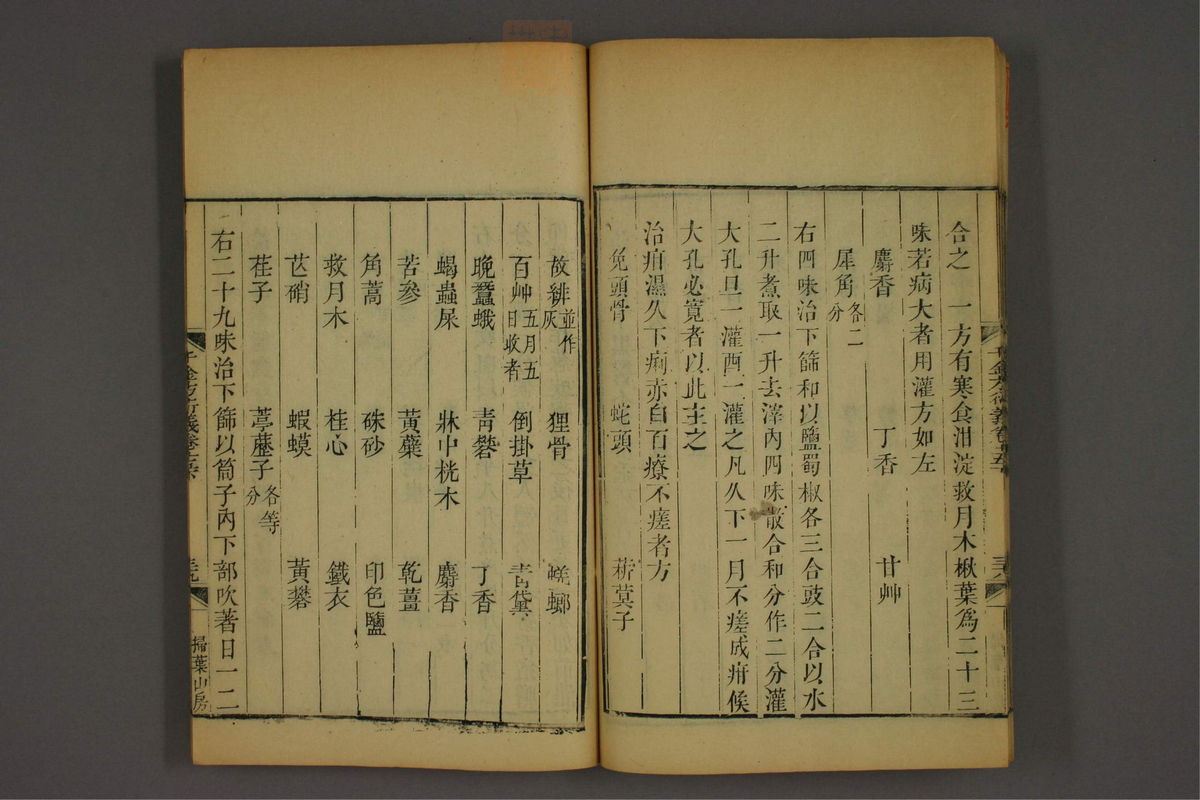 合之　一方有寒食泔淀救月木楸葉爲二十三
味若病大者用灌方如左
麝香　丁香　甘艸
犀角各二分
右四味治下篩和以鹽蜀椒各三合豉二合以水
二升煮取一升去滓內四味散合和分作二分灌
大孔旦一灌酉一灌之凡久下一月不瘥成疳候
大孔必寬者以此主之
治疳濕久下痢赤白百療不瘥者方
兔頭骨　蛇頭　菥蓂子
故緋並作灰　狸骨　蜣螂
百艸五月五日收者　倒掛草　青黛
晚蠶蛾　青礬　丁香
蝎蟲屎　牀中桄木　麝香
苦參　黃蘗　乾薑
角蒿　硃砂　印色鹽
救月木　桂心　鐵衣
芒硝　蝦蟆　黃礬
荏子　葶藶子各等分
右二十九味治下篩以筒子內下部吹著日一二
千金方衍義卷
掃葉山房